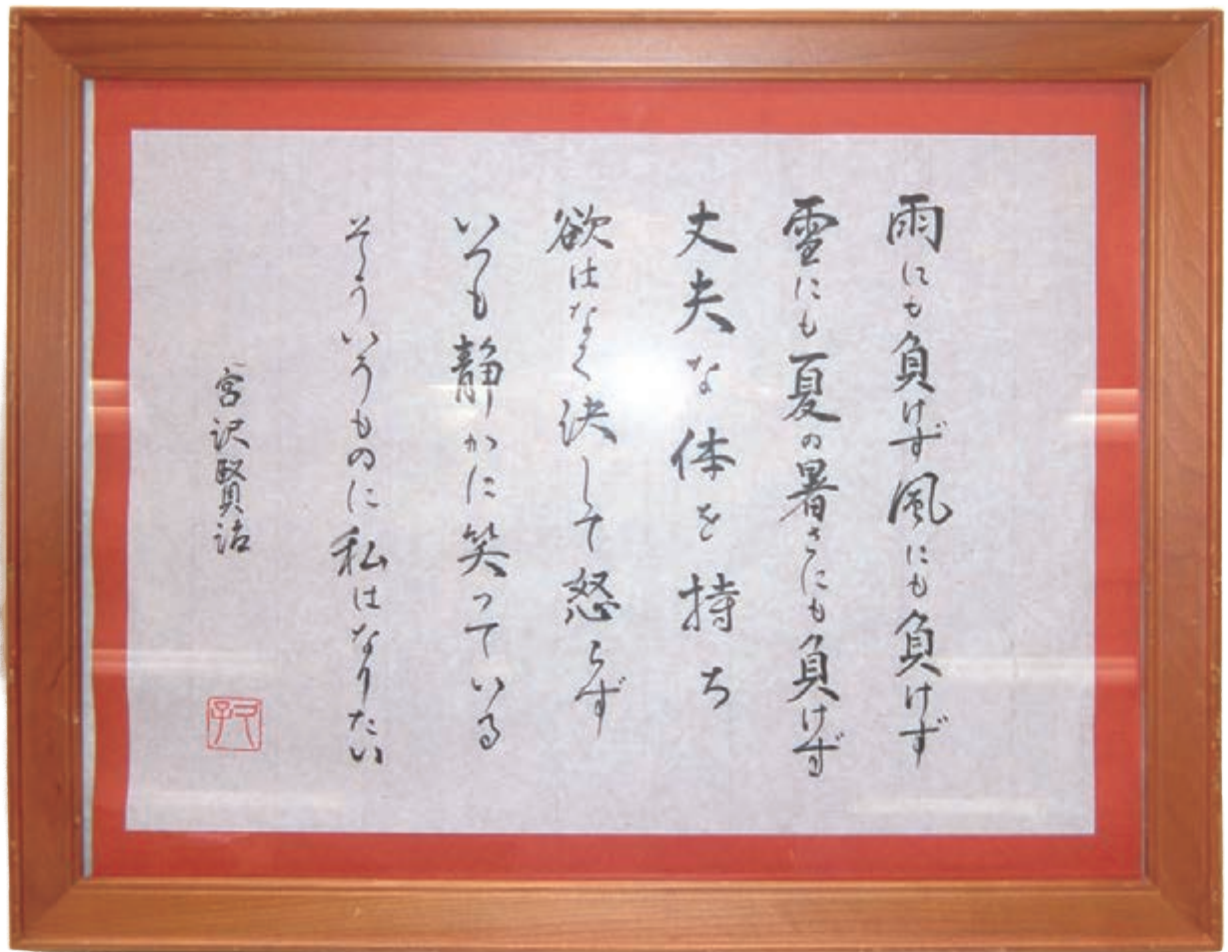 雨にも負けず風にも負けず
雪にも夏の暑さにも負けず
丈夫な体を持ち
欲はなく決して怒らず
いつも静かに笑っている
そういうものに私はなりたい
宮沢賢治